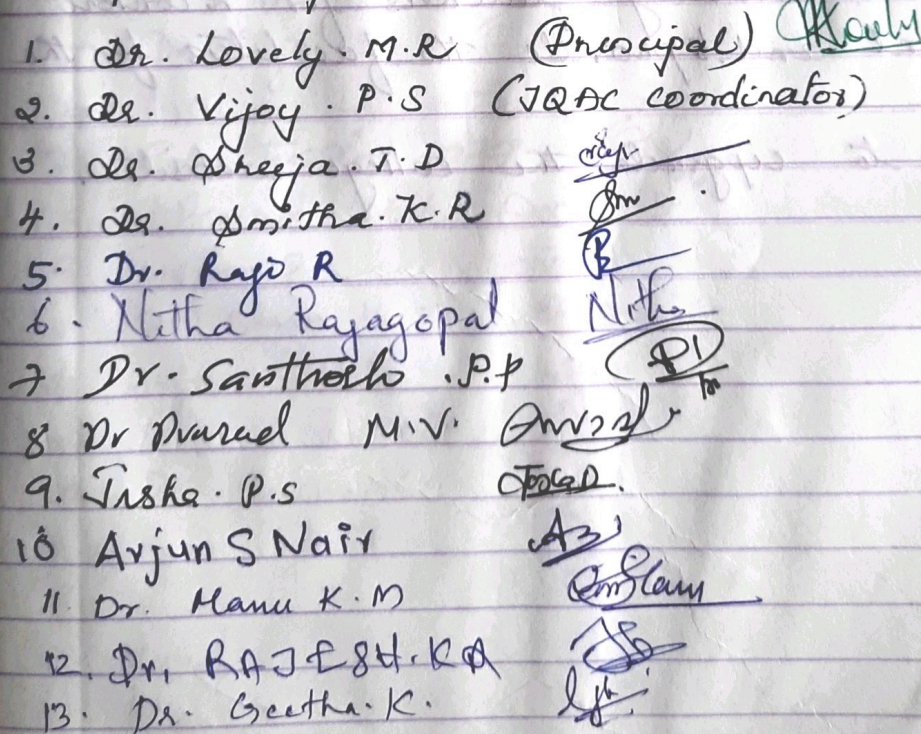 1. Dr. Lovely. M.R (Principal)
2. Dr. Vijoy. P.S (IQAC coordinator)
3. Dr. Sheeja. T.D
4. Dr. Smitha. K.R
5. Dr. Raji R
6. Nitha Rajagopal Nitha
7 Dr. Santhosh .P.P
8 Dr Prasad M.V.
9. Jisha. P.S
10 Arjun S Nair
11. Dr. Manu K.M
12. Dr. RAJESH.K
13. Dr. Geetha.K.